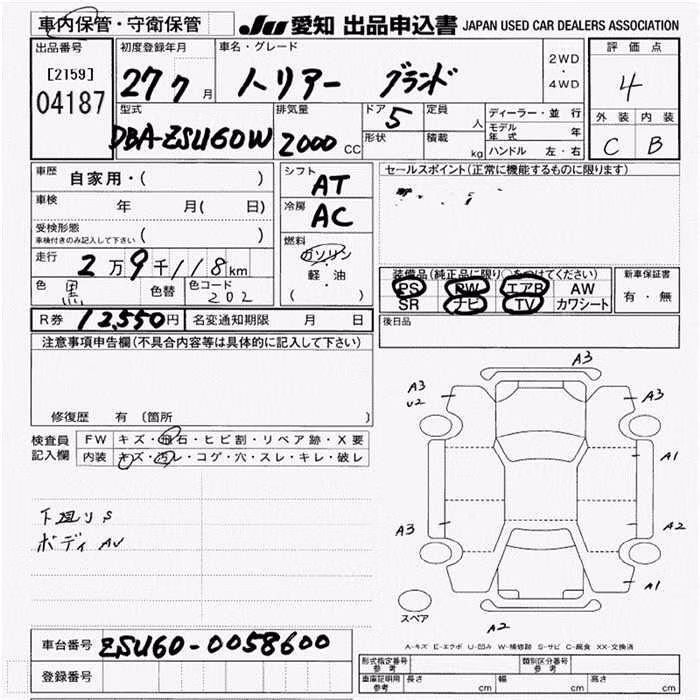 車内保管・守衛保管
JU 愛知 出品申込書 JAPAN USED CAR DEALERS ASSOCIATION
出品番号
[2159]
04187
初度登録年月
27 7 月
車名・グレード
ハリアー グランド
2WD
・
4WD
評価点
4
外装 内装
C B
型式
DBA-ZSU60W
排気量
2000 CC
ドア
5
形状
定員
人
積載
kg
ディーラー・並行
モデル年式 年
ハンドル 左・右
車歴
自家用・( )
車検
年 月( 日)
受検形態
車検付きのみ記入して下さい ( )
走行
2万9千118km
色
黒
色替
色コード
202
シフト
AT
冷房
AC
燃料
ガソリン
・
軽・油
( )
セールスポイント(正常に機能するものに限ります)
装備品(純正品に限り○をつけてください)
PS PW エアB AW
SR ナビ TV カワシート
新車保証書
有・無
後日品
R券 12,550円
名変通知期限 月 日
注意事項申告欄(不具合内容等は具体的に記入して下さい)
修復歴 有 〔箇所 〕
検査員記入欄
FW キズ・飛石・ヒビ割・リペア跡・X要
内装 キズ・汚レ・コゲ・穴・スレ・キレ・破レ
下廻りS
ボディAU
A3
A3
U2
A3
A1
A3
A2
A1
A2
スペア
A-キズ E-エクボ U-凹み W-補修跡 S-サビ C-腐食 XX-交換済
車台番号 ZSU60-0058600
登録番号
形式指定番号 参考
類別区分番号 参考
車庫証明用 参考 長さ cm 幅 cm 高さ cm